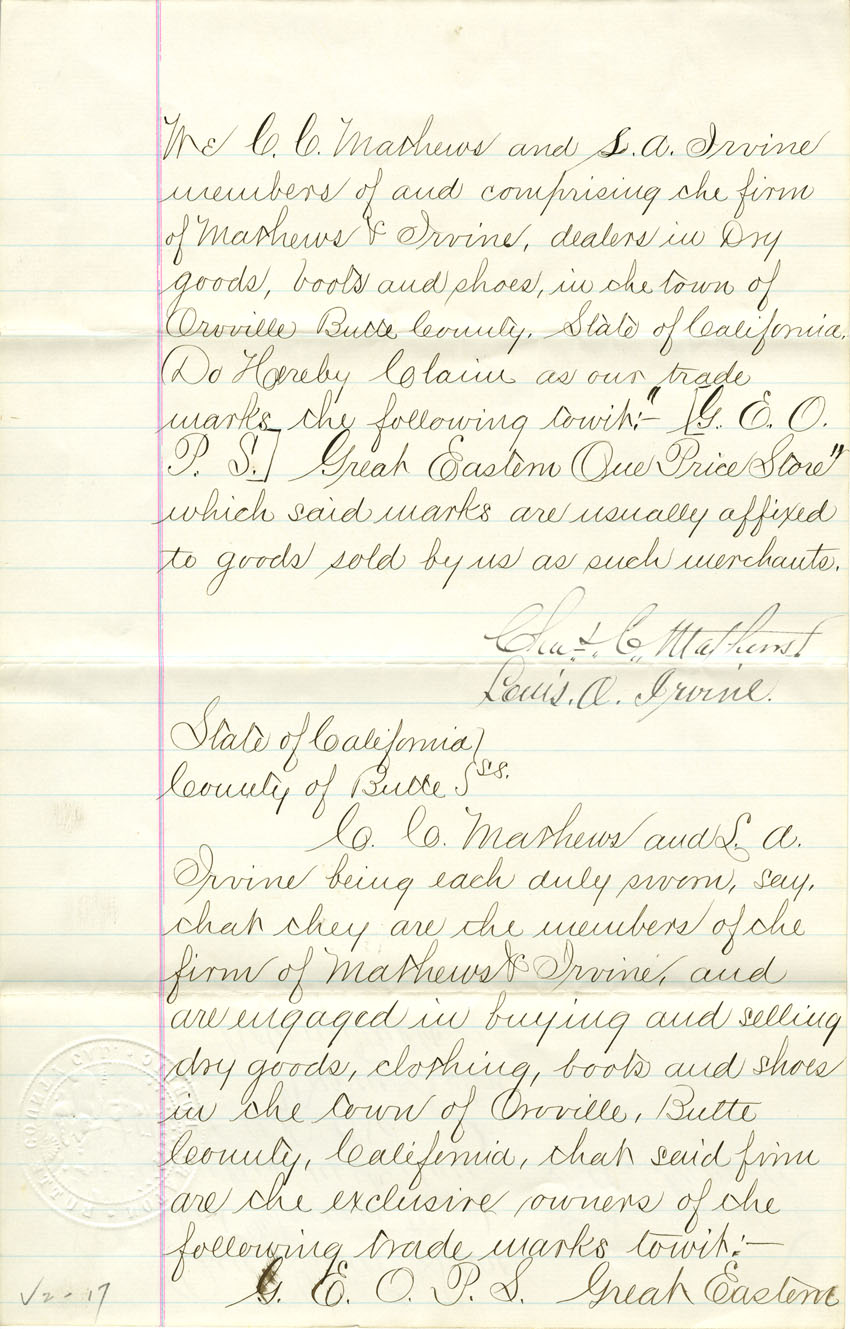 We C. C. Mathews and L. A. Irvine
members of and comprising the firm
of Mathews & Irvine, dealers in Dry
goods, boots and shoes, in the town of
Oroville Butte County, State of California.
Do Hereby Claim as our trade
marks the following towit:- "[G. E. O.
P. S.] Great Eastern One Price Store"
which said marks are usually affixed
to goods sold by us as such merchants.
Chas. C. Mathews
Louis. A. Irvine.
State of California }
County of Butte } ss.
C. C. Mathews and L. A.
Irvine being each duly sworn, say,
that they are the members of the
firm of Mathews & Irvine, and
are engaged in buying and selling
dry goods, clothing, boots and shoes
in the town of Oroville, Butte
County, California, that said firm
are the exclusive owners of the
following trade marks towit:-
G. E. O. P. S. Great Eastern
V2-17